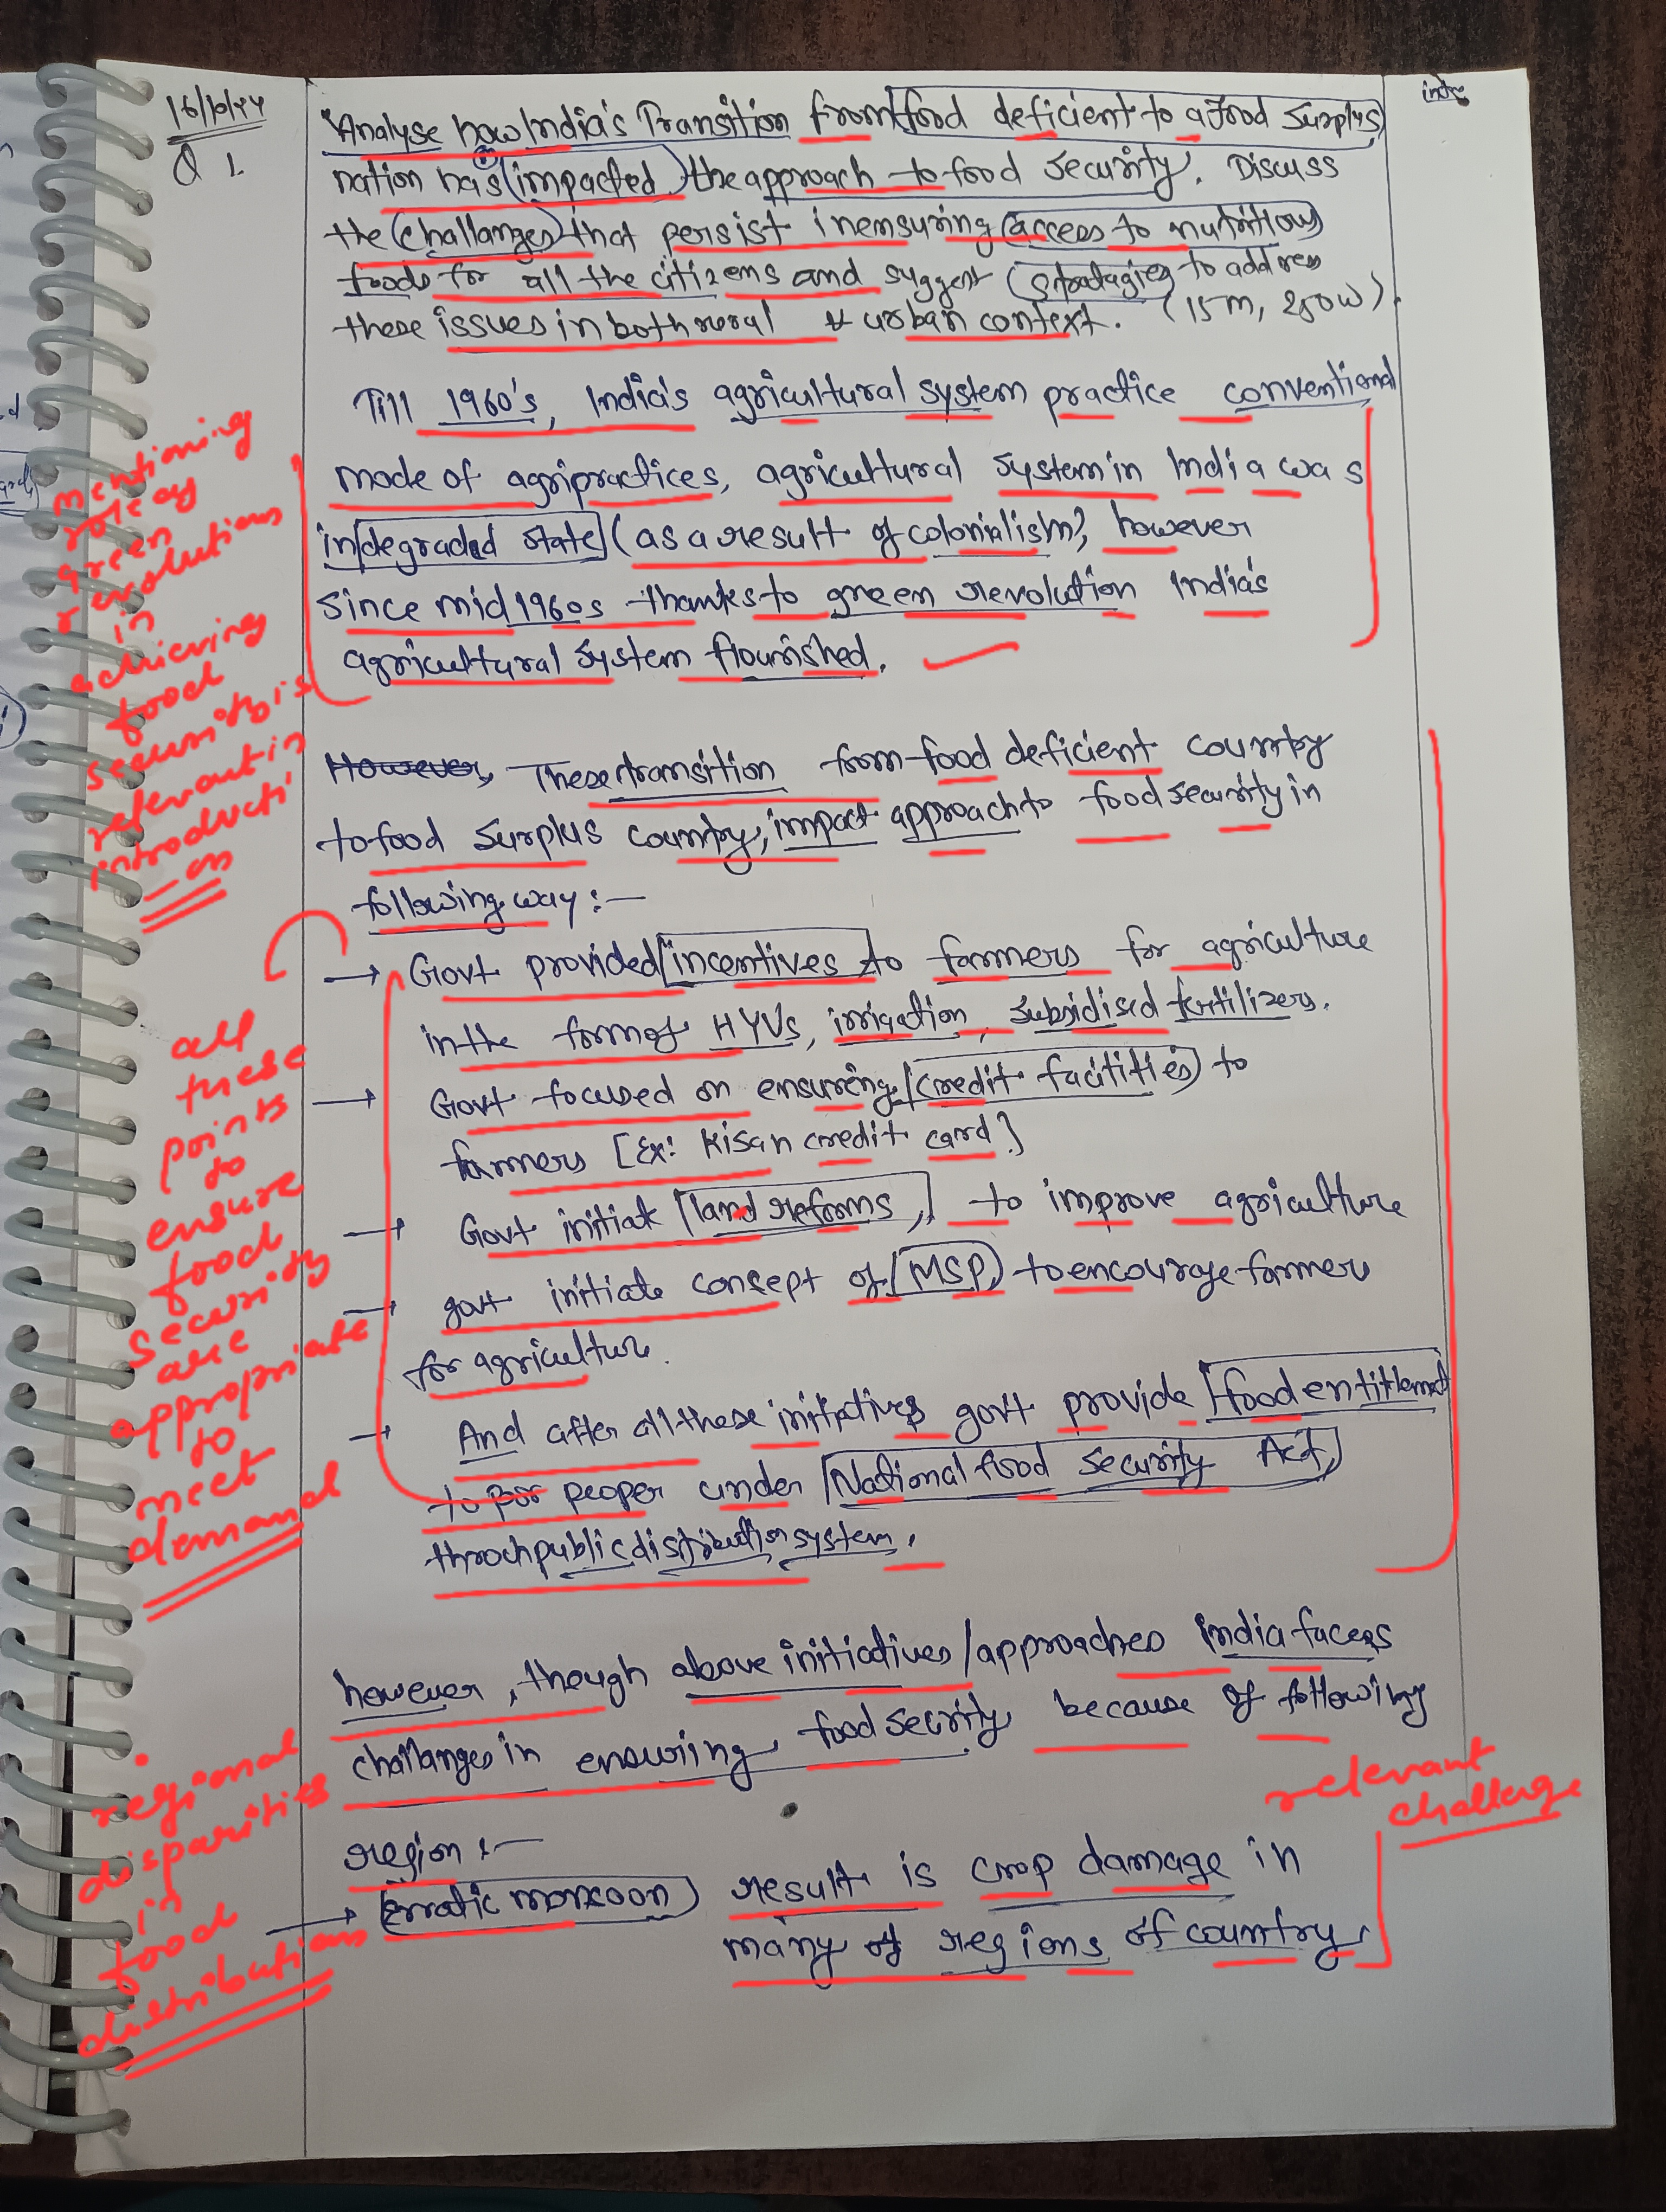 16/10/24
Q 1.
Analyse how India's Transition from food deficient to a food surplus
nation has impacted the approach to food security. Discuss
the challanges that persist in ensuring access to nutritious
foods for all the citizens and suggest stratagies to address
these issues in both rural & urban context. (15 m, 250 w).
Till 1960's, India's agricultural system practice conventional
mode of agripractices, agricultural system in India was
in degraded state (as a result of colonialism), however
since mid 1960s thanks to green revolution India's
agricultural system flourished.
mentioning
role of
green
revolution
in
achieving
food
security is
relevant in
introducti
on
However, These transition from food deficient country
to food surplus country, impact approach to food security in
following way :-
→ Govt provided incentives to farmers for agriculture
in the form of HYVs, irrigation, subsidised fertilizers.
→ Govt focused on ensuring credit facilities to
farmers [Ex: Kisan credit card]
→ Govt initiate land reforms, to improve agriculture
→ govt initiate concept of MSP to encourage farmers
for agriculture.
→ And after all these initiatives govt provide food entitlement
to por peoper under National food security Act,
throch public distribution system.
all
these
points
to
ensure
food
security
are
appropriate
to
meet
demand
however, though above initiatives/approaches India faces
challanges in ensuring food security because of following
region :-
→ Erratic monsoon result is crop damage in
many of regions of country.
relevant
challenge
regional
disparities
in
food
distribution